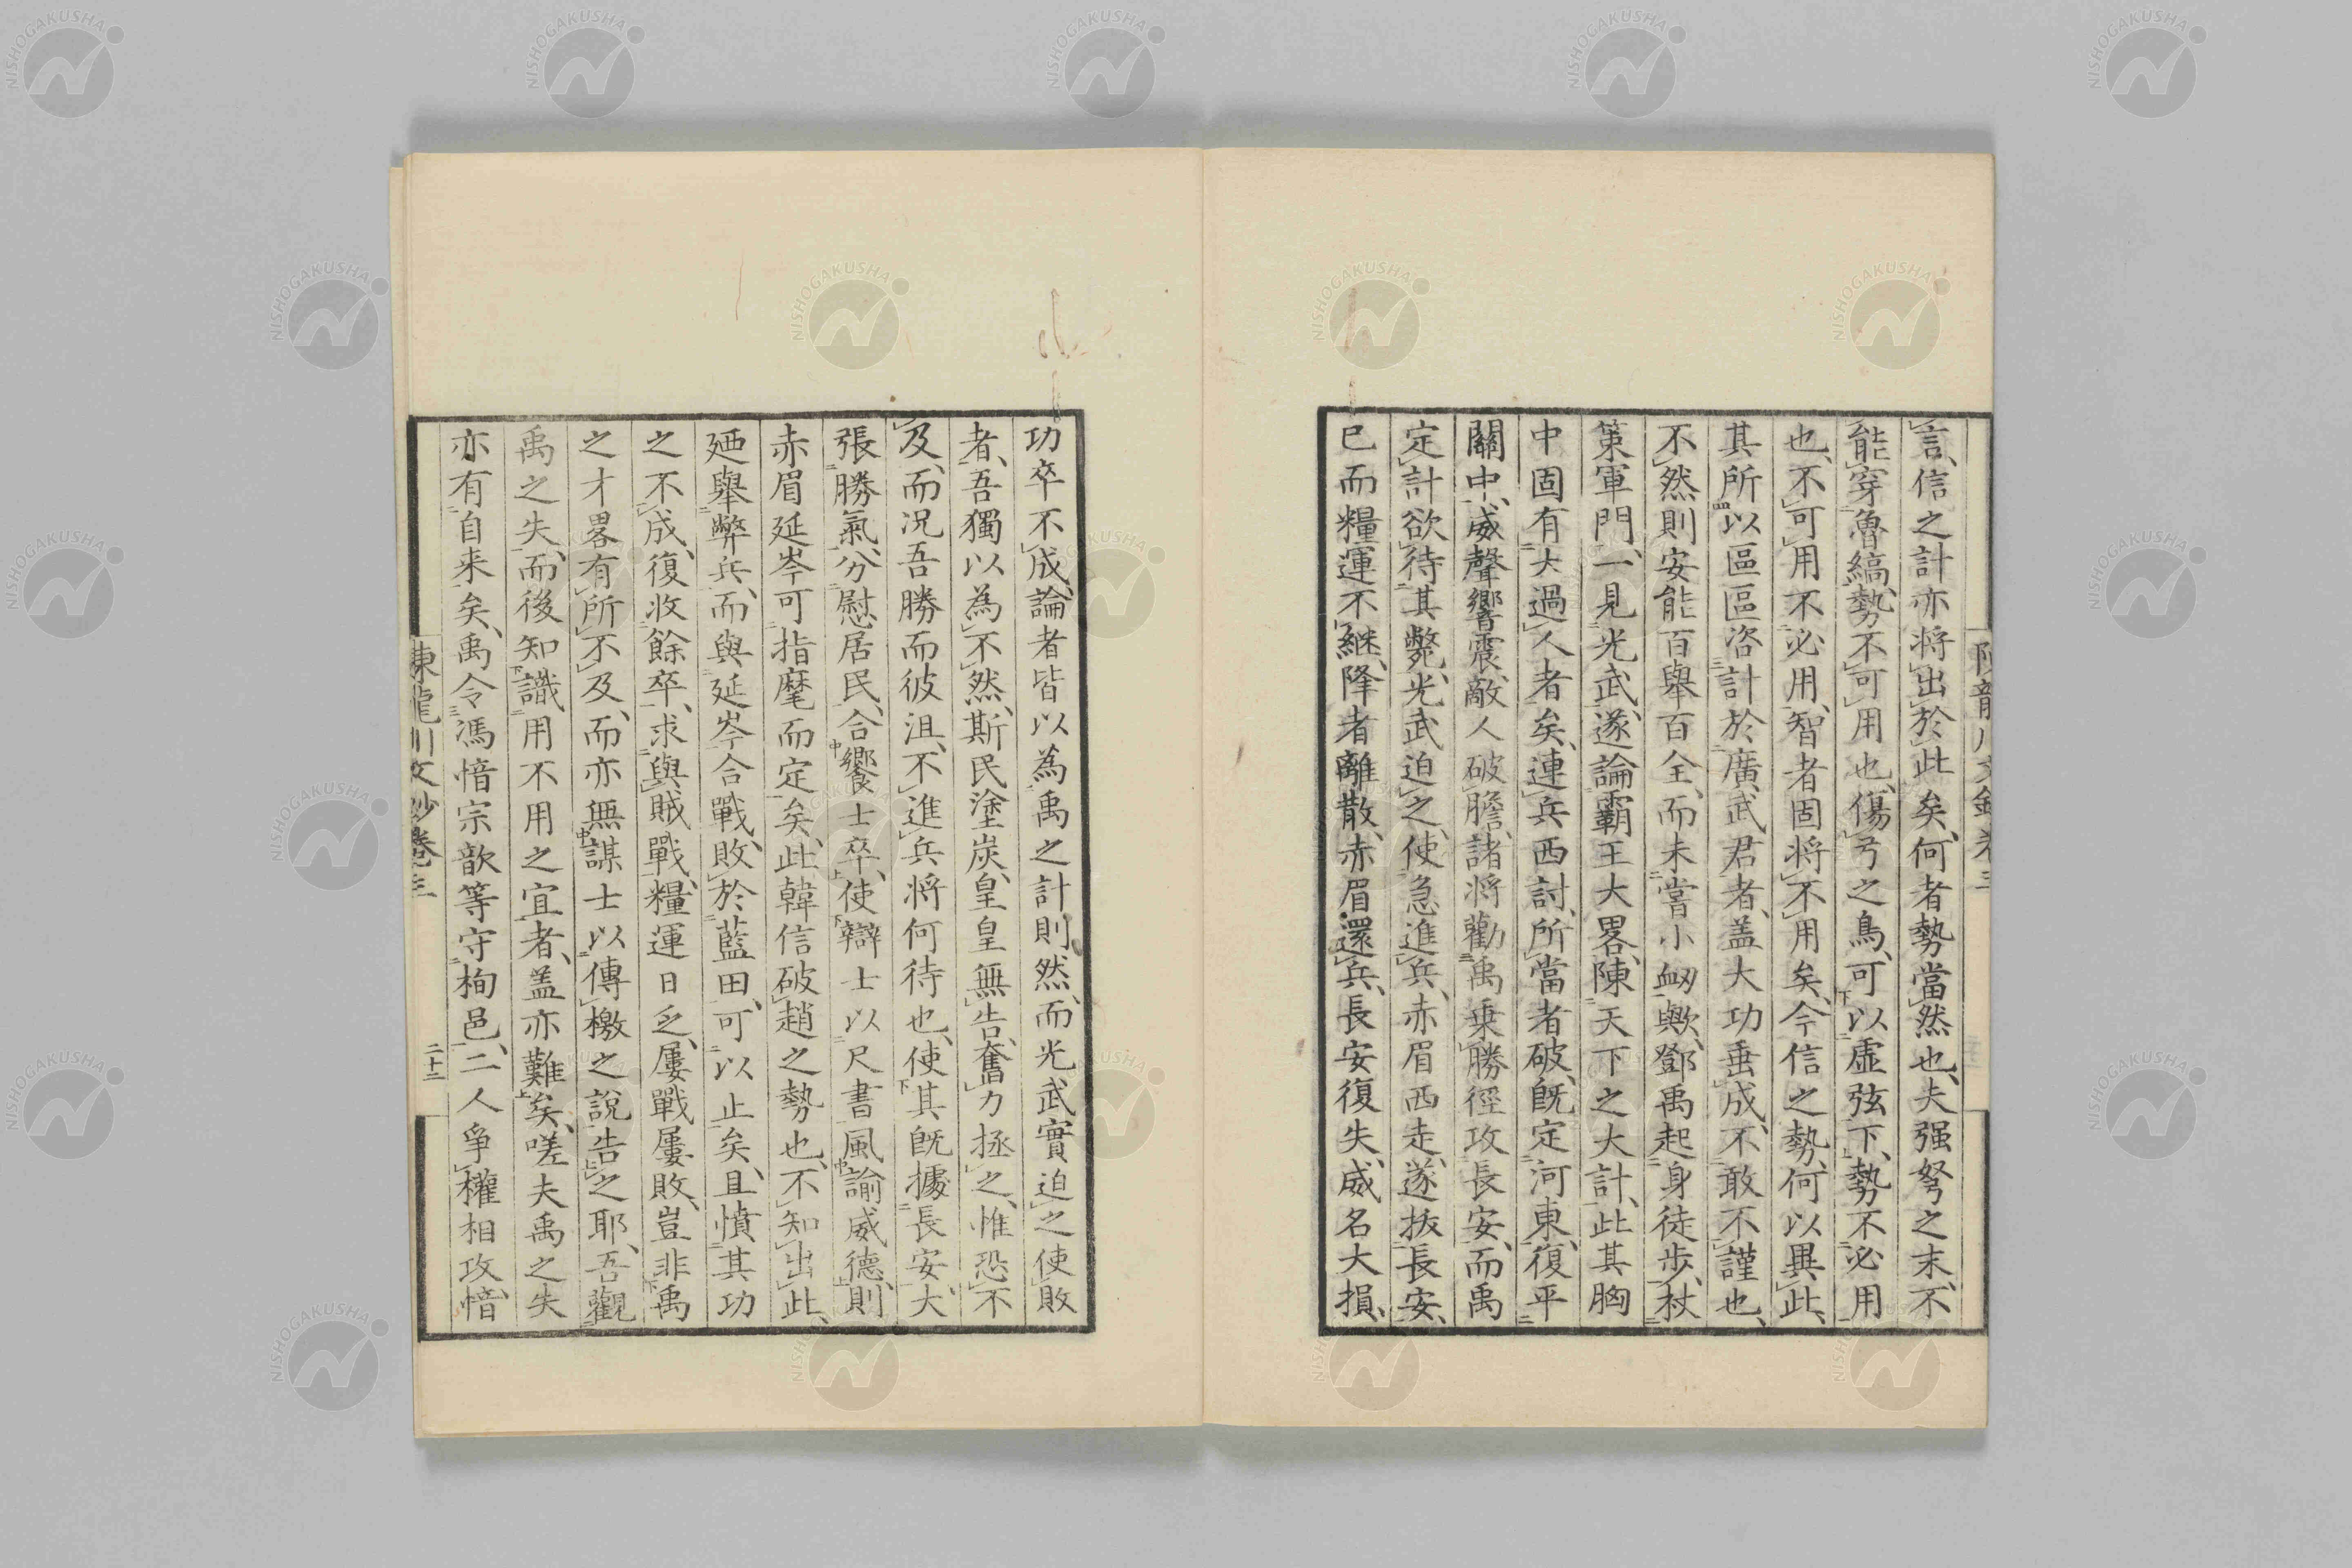 言信之計亦将出於此矣何者勢當然也夫强弩之末不
能穿魯縞勢不可用也傷弓之鳥可以虛弦下勢不必用
也不可用不必用智者固将不用矣今信之勢何以異此
其所以區區咨計於廣武君者盖大功垂成不敢不謹也
不然則安能百舉百全而未嘗小衂歟鄧禹起身徒步杖
策軍門一見光武遂論霸王大畧陳天下之大計此其胸
中固有大過人者矣連兵西討所當者破旣定河東復平
關中威聲響震敵人破膽諸将勸禹乗勝徑攻長安而禹
定計欲待其斃光武迫之使急進兵赤眉西走遂抜長安
已而糧運不継降者離散赤眉還兵長安復失威名大損
功卒不成論者皆以為禹之計則然而光武實迫之使敗
者吾獨以為不然斯民塗炭皇皇無告奮力拯之惟恐不
及而况吾勝而彼沮不進兵将何待也使其旣據長安大
張勝氣分慰居民合饗士卒使辯士以尺書風諭威德則
赤眉延岑可指麾而定矣此韓信破趙之勢也不知出此
廼舉弊兵而與延岑合戰敗於藍田可以止矣且憤其功
之不成復收餘卒求與賊戰糧運日乏屢戰屢敗豈非禹
之才畧有所不及而亦無謀士以傳檄之說告之耶吾觀
禹之失而後知識用不用之宜者盖亦難矣嗟夫禹之失
亦有自来矣禹令馮愔宗歆等守栒邑二人爭權相攻愔
陳龍川文鈔卷三
二十二
NISHOGAKUSHA